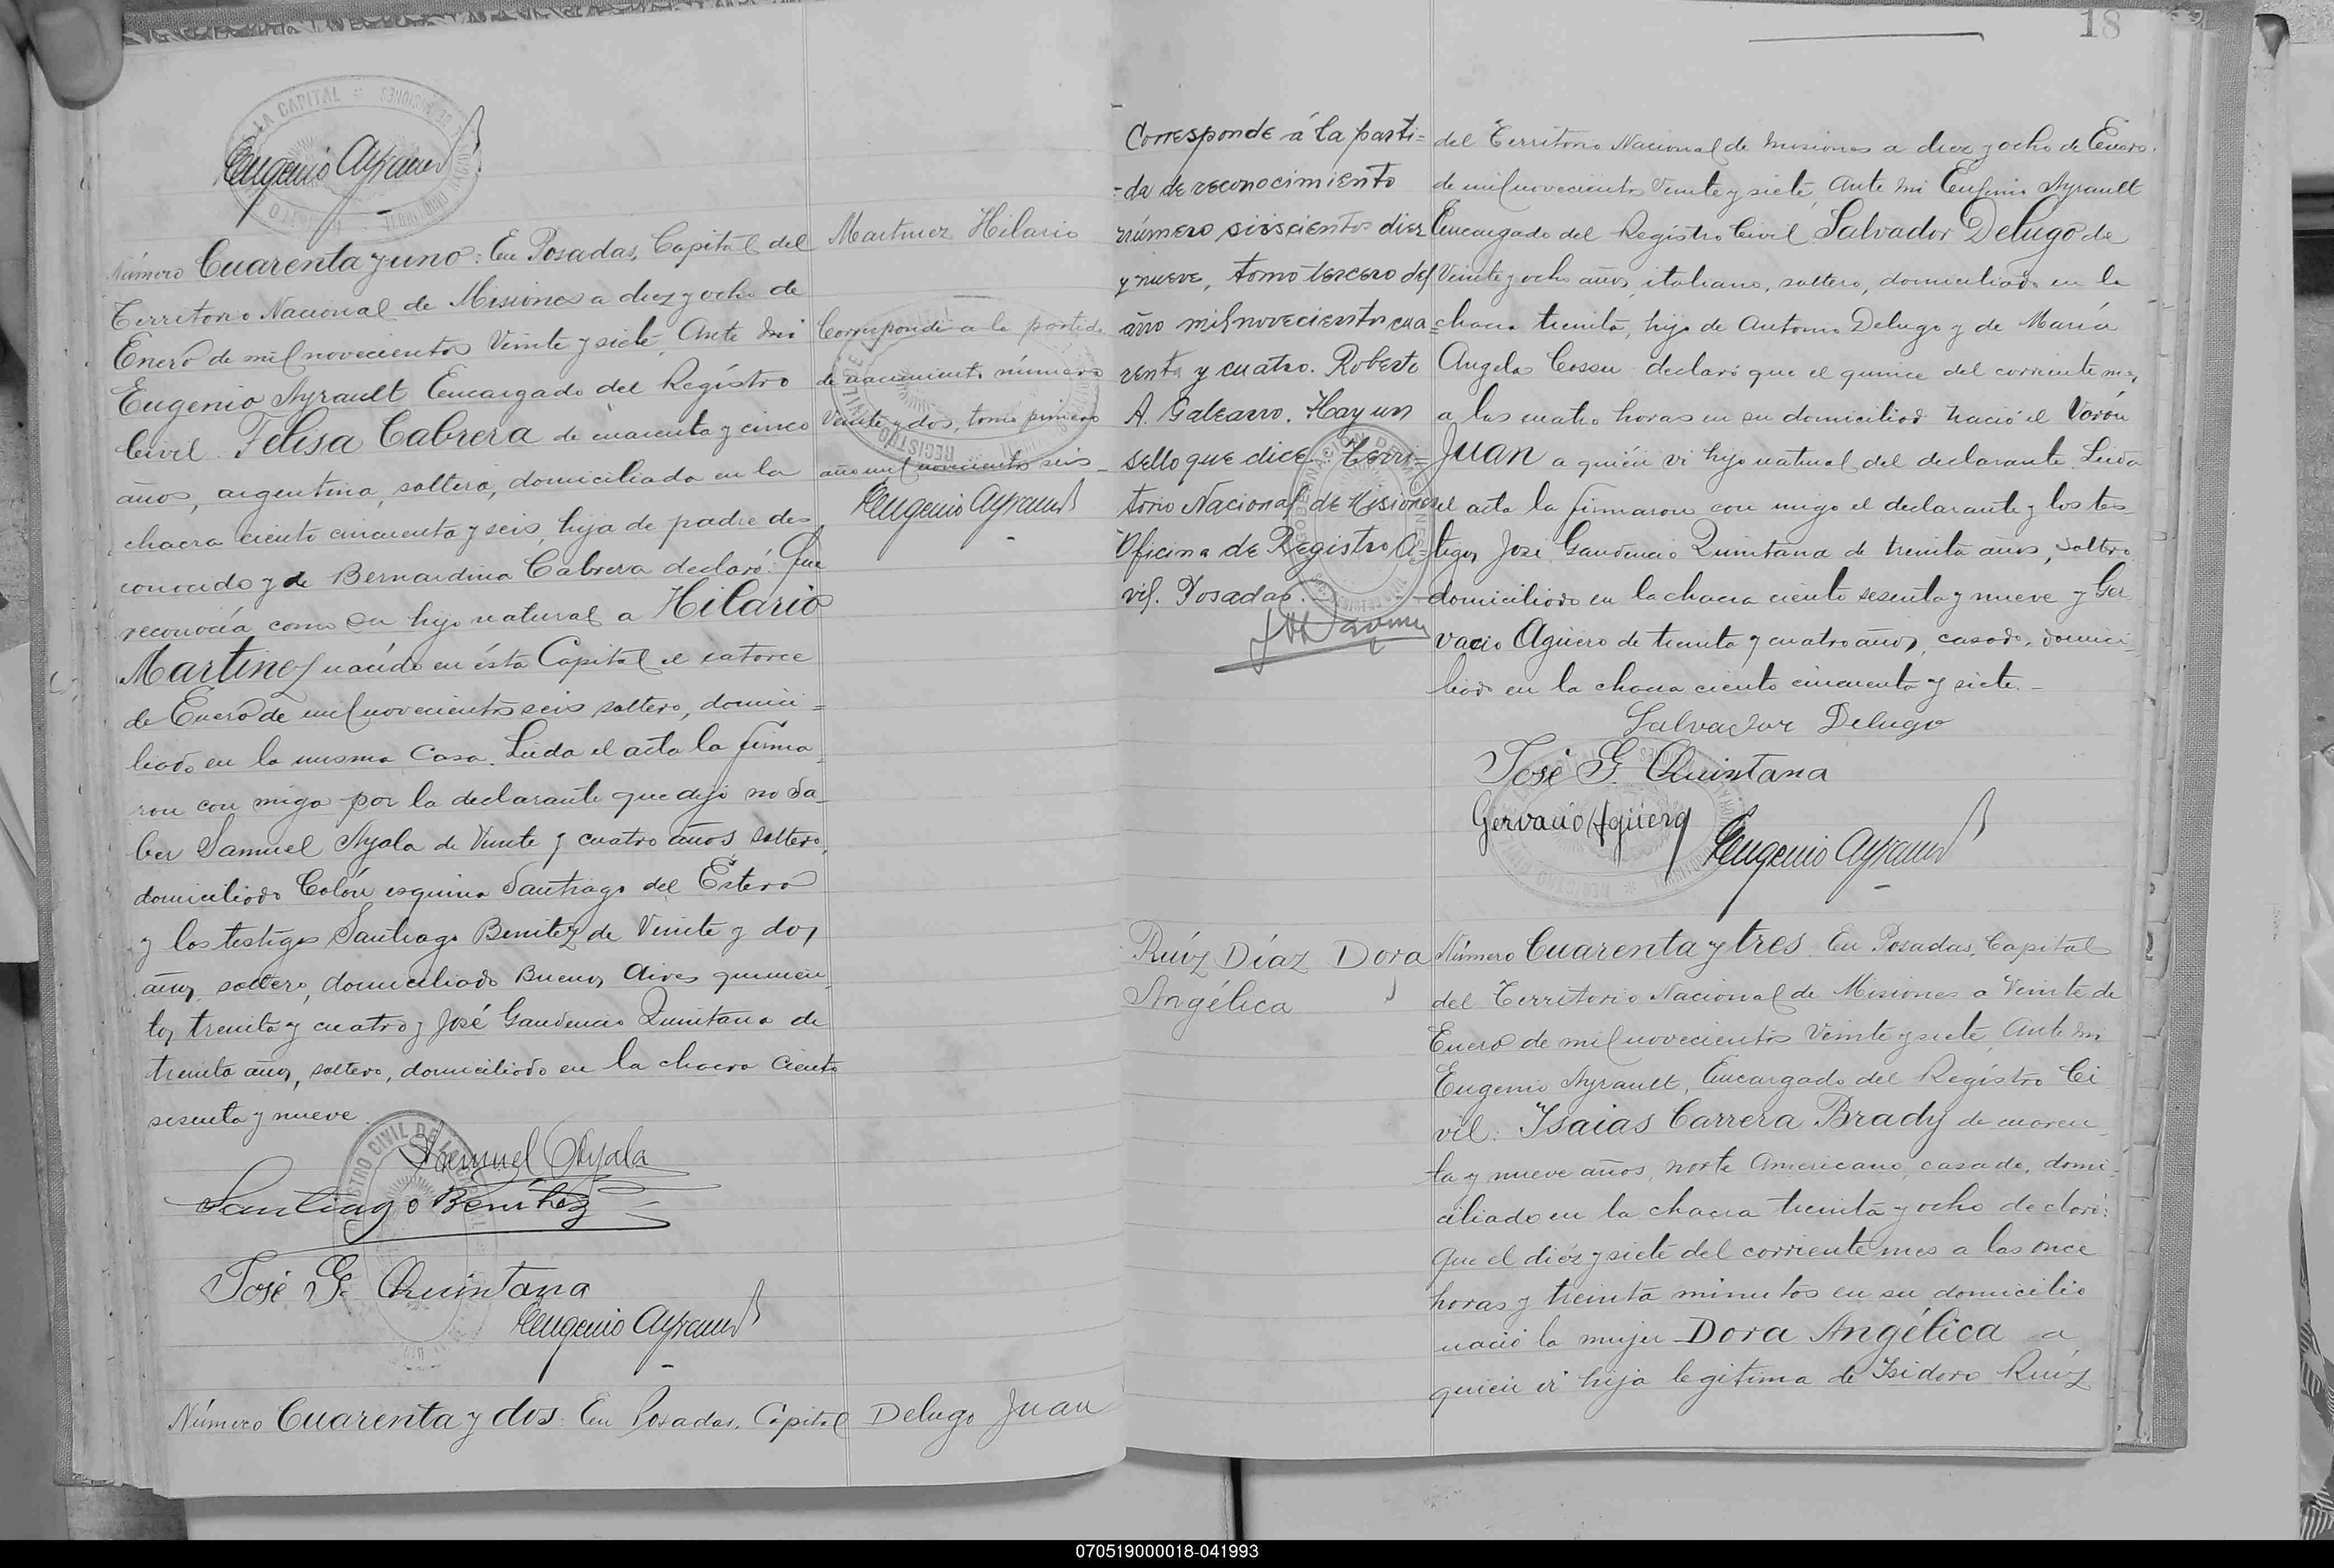 Eugenio Ayrault
Número Cuarenta y uno: En Posadas, Capital del
Territorio Nacional de Misiones a diez y ocho de
Enero de mil novecientos Veinte y siete, Ante mi
Eugenio Ayrault Encargado del Registro
Civil Felisa Cabrera de cuarenta y cinco
años, argentina, soltera, domiciliada en la
chacra ciento cincuenta y seis, hija de padre des
conocido y de Bernardina Cabrera declaró: Que
reconocía como su hijo natural a Hilario
Martinez nacido en ésta Capital el catorce
de Enero de mil novecientos seis soltero, domici=
liado en la misma Casa. Leida el acta la firma
ron con migo por la declarante que dijo no sa
ber Samuel Ayala de Veinte y cuatro años soltero,
domiciliado Colón esquina Santiago del Estero
y los testigos Santiago Benitez de Veinte y dos
años, soltero, domiciliado Buenos Aires quinien
tos treinta y cuatro y José Gaudencio Quintana de
treinta años, soltero, domiciliado en la chacra Ciento
sesenta y nueve.
Samuel Ayala
Santiago Benitez
José G. Quintana
Eugenio Ayrault
Número Cuarenta y dos. En Posadas, Capital
Martinez Hilario
Corresponde a la partida
de nacimiento número
Veinte y dos, tomo primero
año mil novecientos seis
Eugenio Ayrault
Delugo Juan
18
Corresponde á la parti=
-da de reconocimiento
número seiscientos diez
y nueve, tomo tercero del
año mil novecientos cua=
renta y cuatro. Roberto
A. Galeano. Hay un
sello que dice: Terri=
torio Nacional de Misiones
Oficina de Registro Ci=
vil. Posadas.
del Territorio Nacional de Misiones a diez y ocho de Enero
de mil novecientos Veinte y siete, Ante mi Eugenio Ayrault
Encargado del Registro Civil Salvador Delugo de
Veinte y ocho años, italiano, soltero, domiciliado en la
chacra treinta, hijo de Antonio Delugo y de María
Angela Cossu declaró que el quince del corriente mes,
a las cuatro horas en su domicilio nació el Varón
Juan a quién vi hijo natural del declarante. Leida
el acta la firmaron con migo el declarante y los tes
tigos José Gaudencio Quintana de treinta años, soltero
domiciliado en la chacra ciento sesenta y nueve y Ger
vacio Agüero de treinta y cuatro años, casado, domici
liado en la chacra ciento cincuenta y siete.-
Salvador Delugo
José G. Quintana
Gervacio Agüero
Eugenio Ayrault
Ruíz Díaz Dora
Angélica
Número Cuarenta y tres. En Posadas, Capital
del Territorio Nacional de Misiones a Veinte de
Enero de mil novecientos Veinte y siete, Ante mi
Eugenio Ayrault, Encargado del Registro Ci
vil: Isaias Carrera Brady de cuaren
ta y nueve años, norte Americano, casado, domi-
ciliado en la chacra treinta y ocho declaró:
Que el diéz y siete del corriente mes a las once
horas y treinta minutos en su domicilio
nació la mujer Dora Angélica a
quien vi hija legitima de Isidoro Ruíz
070519000018-041993